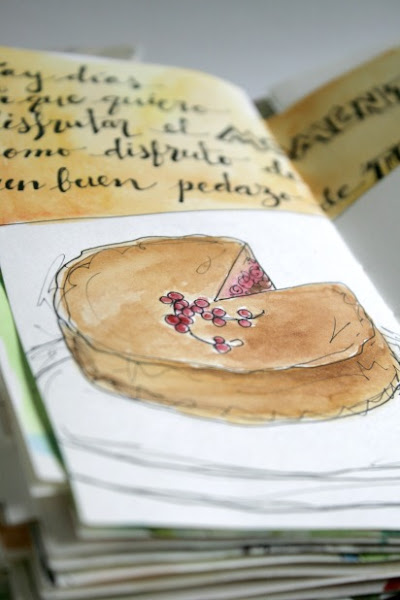 Hay días
en que quiero
disfrutar el
como disfruto de
un buen pedazo de